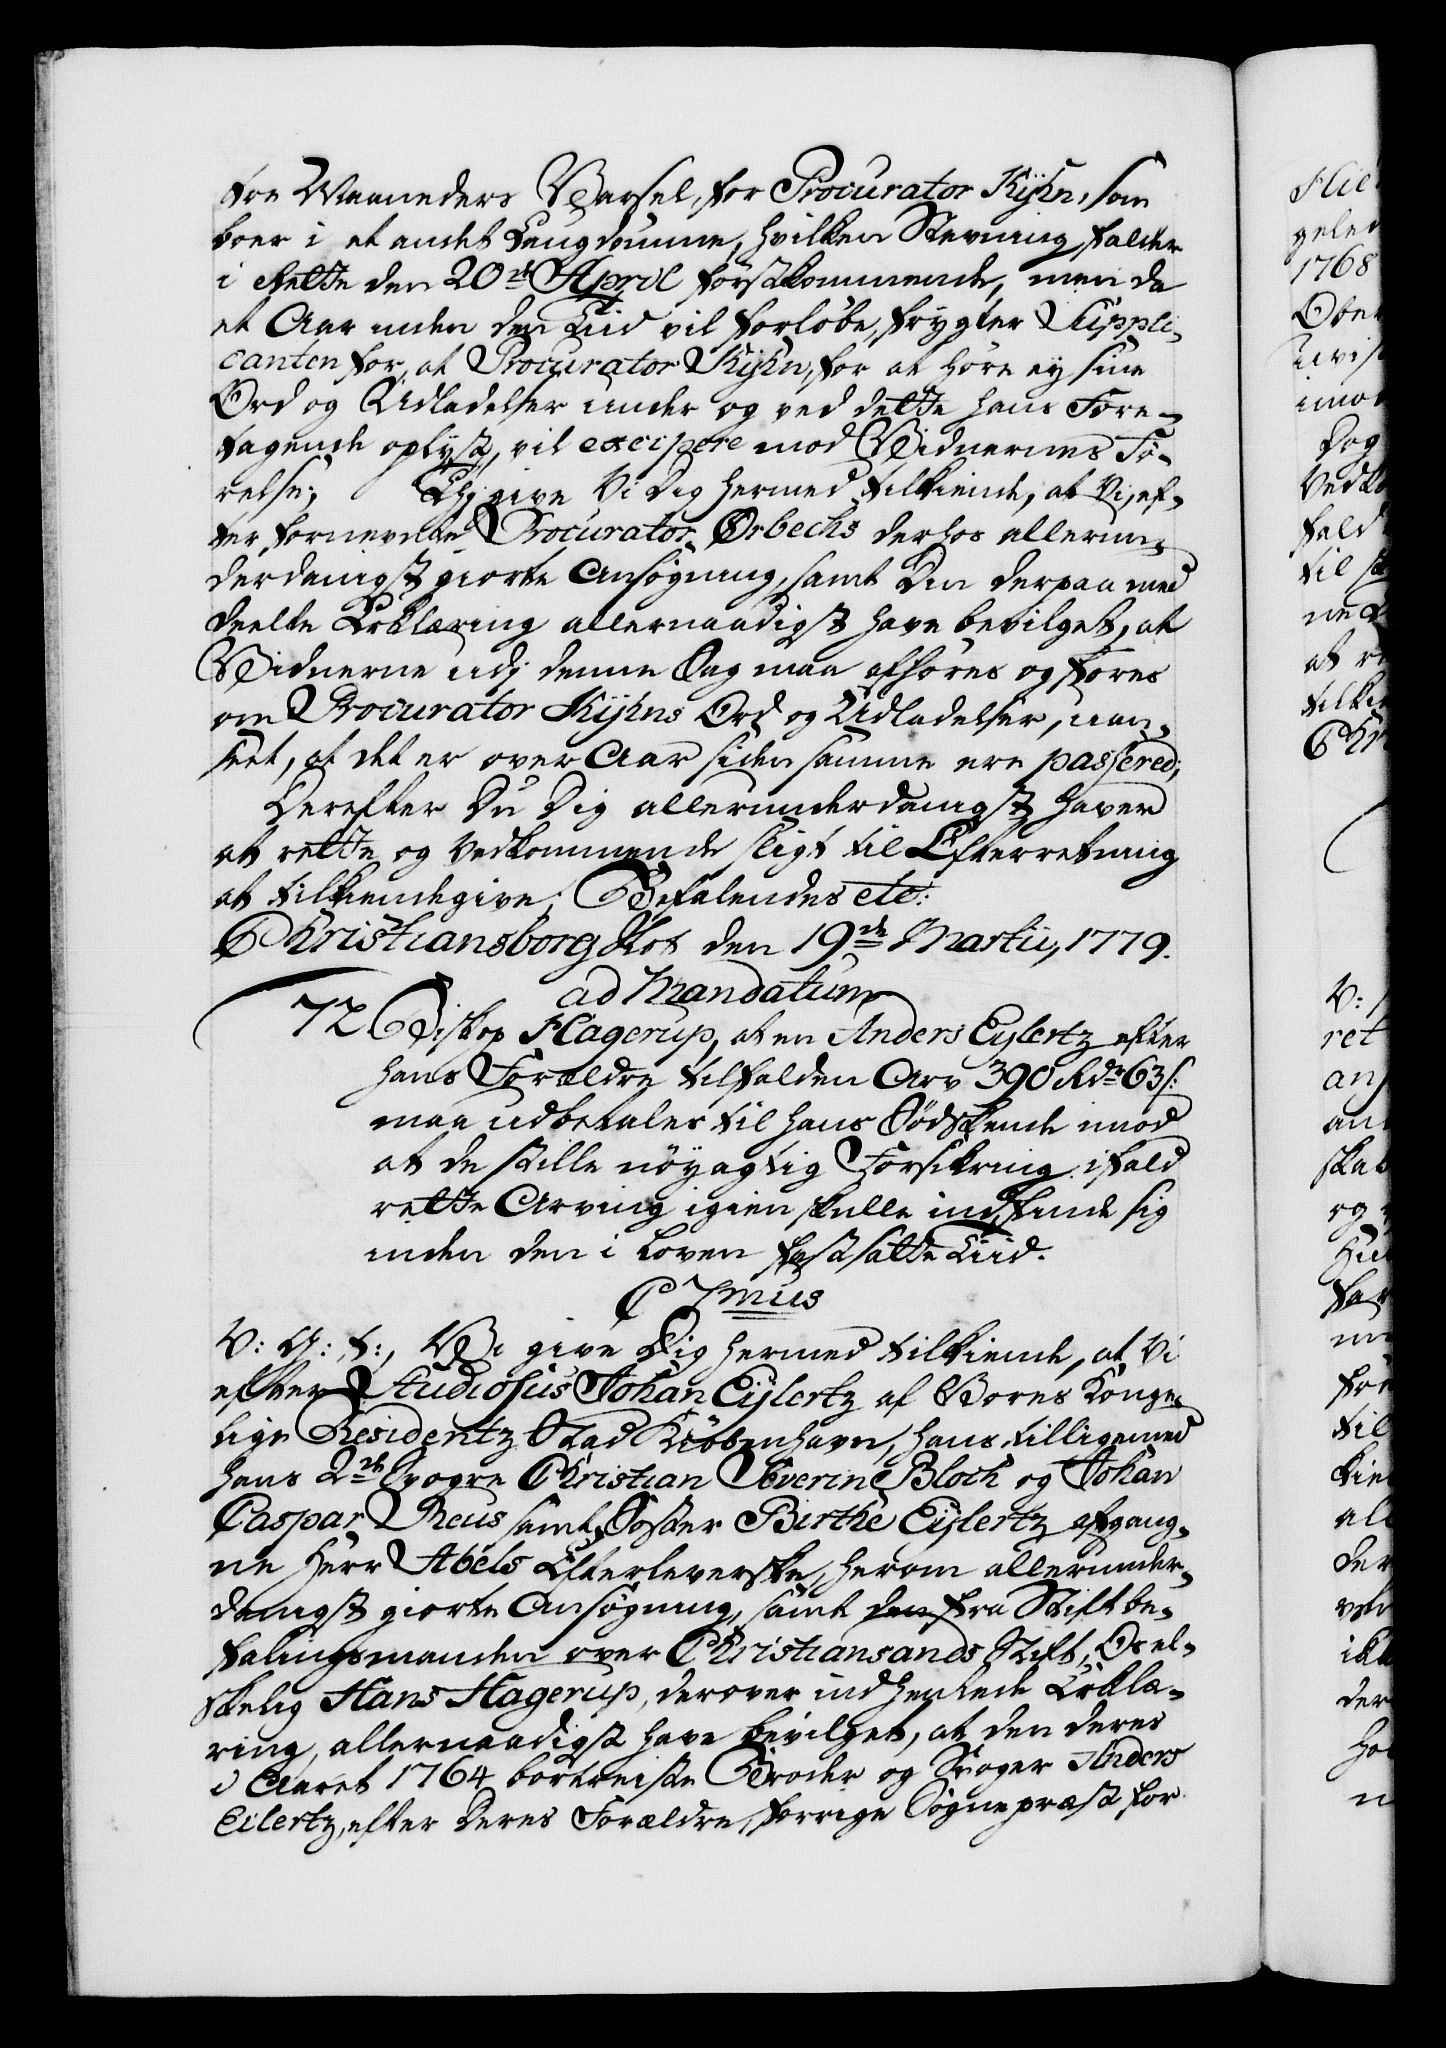 tre Maaneders Varsel, for Procurator Kyhn, som
boer i et andet Laugdømme, hvilken Stevning falder
i Rette den 20de April førstkommende, men da
et Aar inden den Tiid vil forløbe, frygter Suppli-
canten for, at Procurator Kyhn, for at høre ey sine
Ord og Udladelser under og ved dette hans Fore-
tagende oplyst, vil excipere mod Vidnernes Fø-
relse; Thj give Vi Dig hermed tilkiende, at Vi, ef-
ter fornevnte Procurator Ørbechs derhos allerun-
derdanigst giorte Ansøgning, samt Din derpaa med
deelte Erklæring allernaadigst have bevilget, at
Vidnerne udj denne Sag maa afhøres og føres
om Procurator Kyhns Ord og Udladelser, uan-
seet, at det er over Aar siden samme ere passered;
Derefter Du Dig allerunderdanigst haver
at rette og vedkommende sligt til Efterretning
at tilkiendegive. Befalendes etc:
Christiansborg Slot den 19de Martii, 1779.
ad Mandatum
72 Biskop Hagerup, at en Anders Eylertz efter
hans Forældre tilfalden Arv 390 Rdr 63 s:
maa udbetales til hans Sødskende imod
at de stille nøyagtig Forsikring ifald
rette Arving igien skulle indfinde sig
inden den i Loven fastsatte Tiid.
C 7mus
V: G: T:, Vi give Dig hermed tilkiende, at Vi
efter Studiosus Johan Eylertz af Vores Konge-
lige Residentz Stad Kiøbenhavn, hans tilligemed
hans 2de Svogre Christian Severin Bloch og Johan
Caspar Reus samt Søster Birthe Eylertz afgang-
ne Herr Abels Efterleverske, herom allerunder-
danigst giorte Ansøgning, samt den fra Stiftbe-
falingsmanden over Christiansands Stift, Os el-
skelig Hans Hagerup, derover indhentede Erklæ-
ring, allernaadigst have bevilget, at den deres
i Aaret 1764 bortreiste Broder og Svoger Anders
Eilertz, efter deres Forældre, forrige Sognepræst for